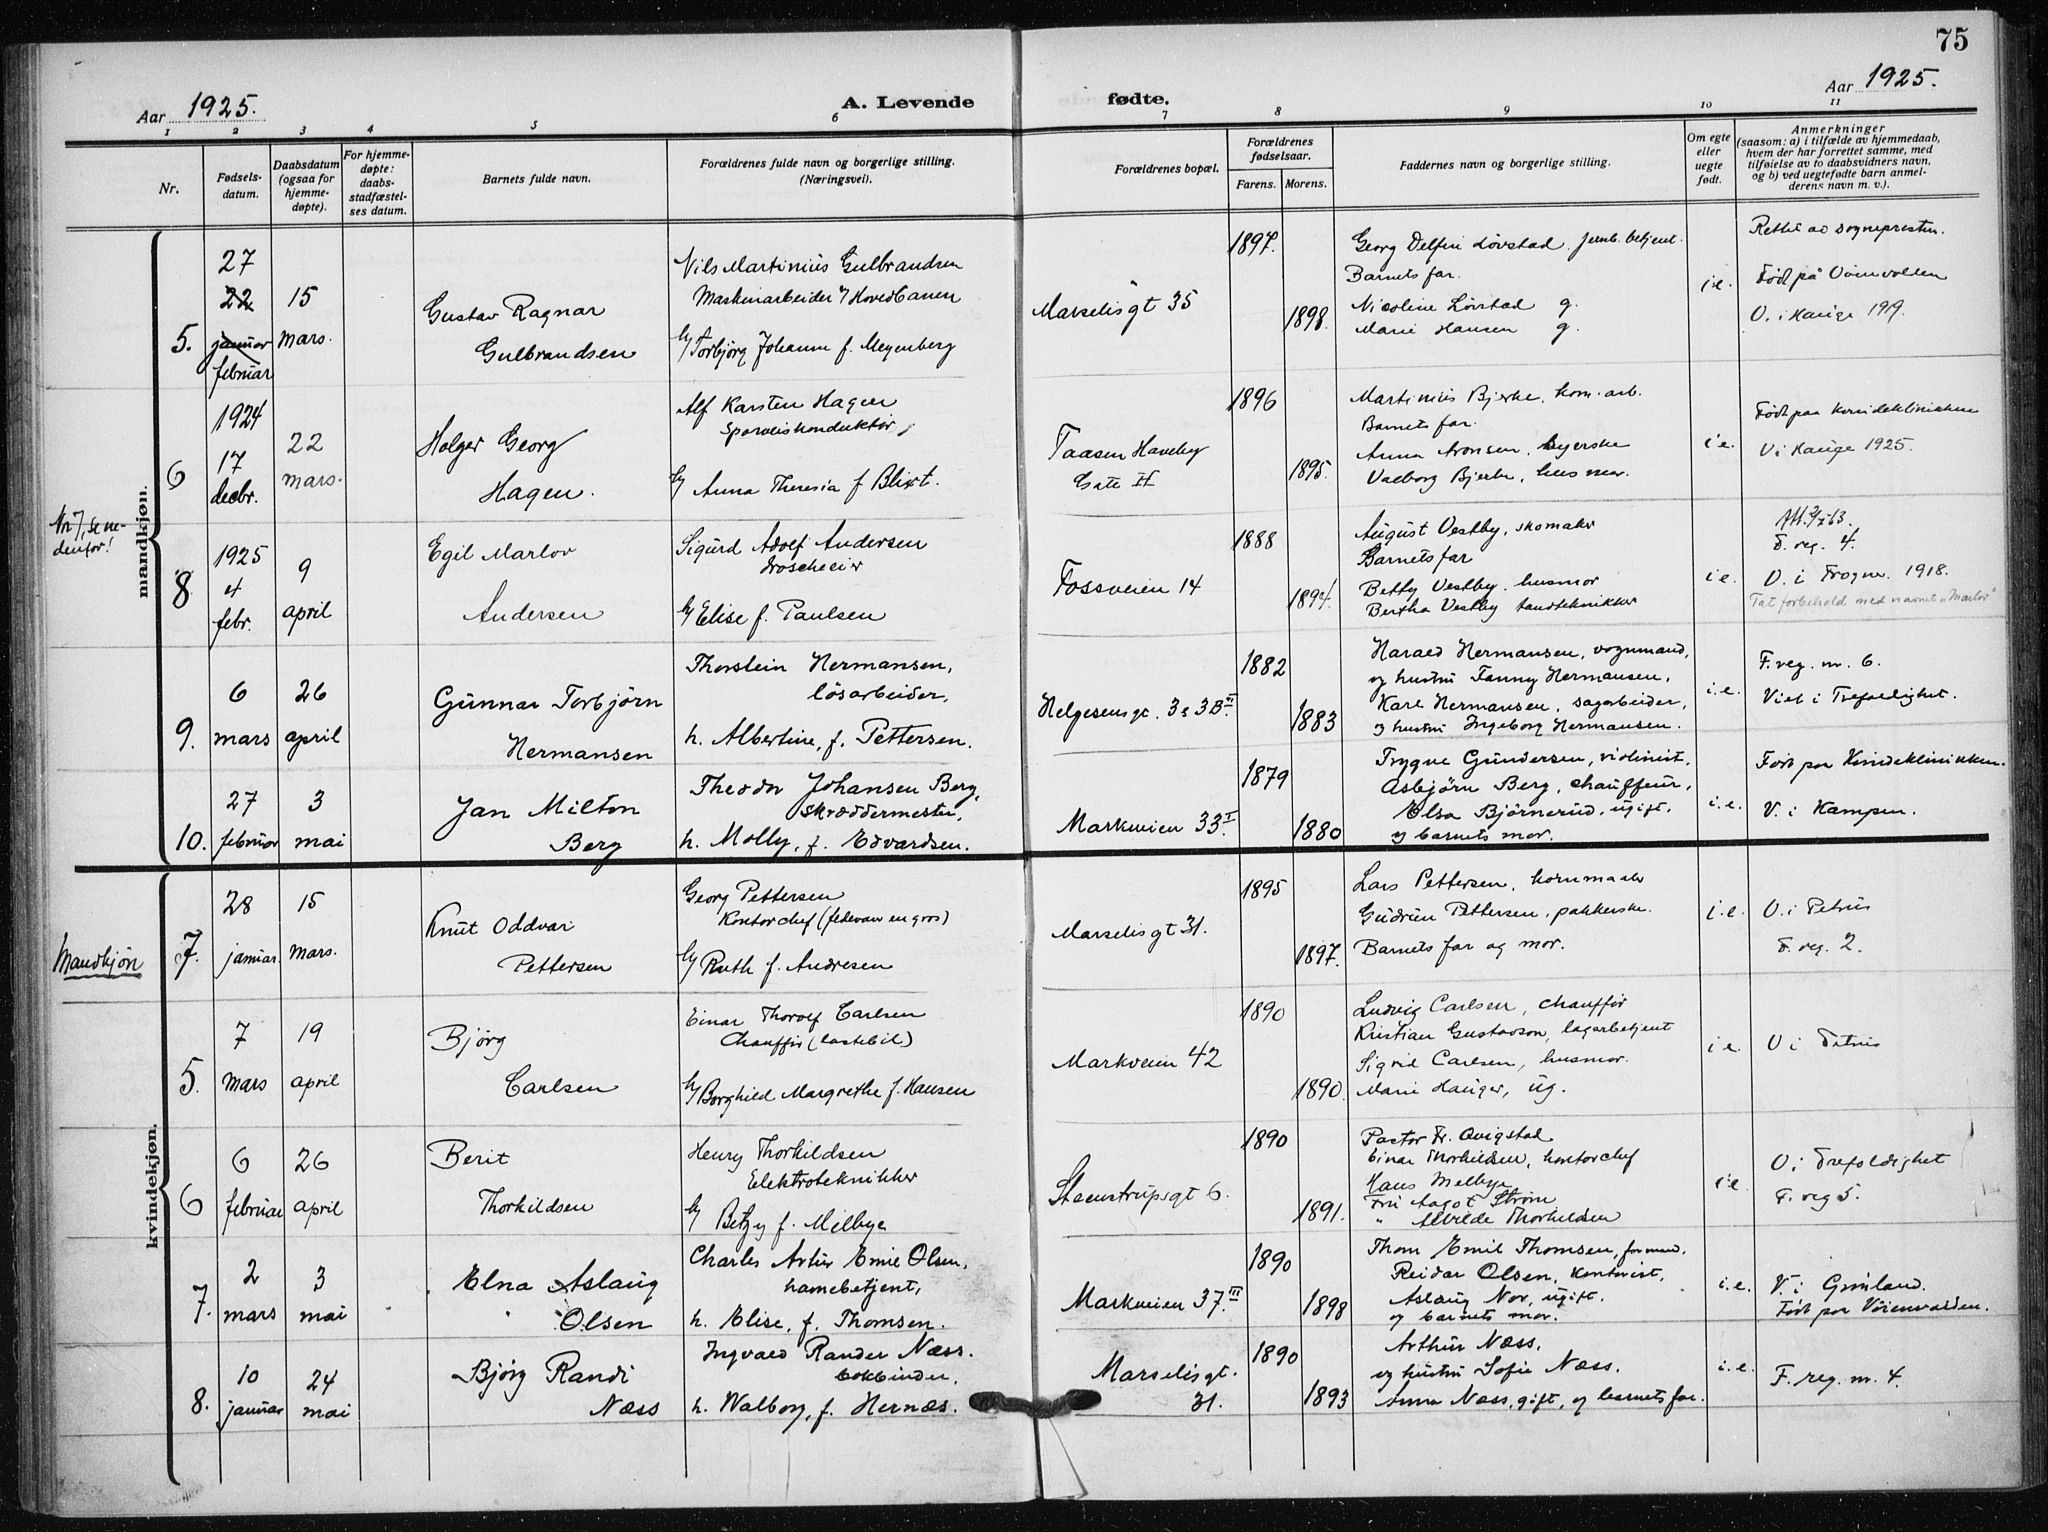 75
Aar 1925.
A. Levende
fødte.
Aar 1925.
1 2 3 4 5 6 7 8 9 10 11
Nr.
Fødsels-
datum.
Daabsdatum
(ogsaa for
hjemme-
døpte).
For hjemme-
døpte:
daabs-
stadfæstel-
ses datum.
Barnets fulde navn.
Forældrenes fulde navn og borgerlige stilling.
(Næringsvei).
Forældrenes bopæl.
Forældrenes
fødselsaar.
Farens. Morens.
Faddernes navn og borgerlige stilling.
Om egte
eller
uegte
født.
Anmerkninger
(saasom: a) i tilfælde av hjemmedaab,
hvem der har forrettet samme, med
tilføielse av to daabsvidners navn,
og b) ved uegtefødte barn anmel-
derens navn m. v.).
mandkjøn.
5.
27
22
januar
februar
15
mars.
Gustav Ragnar
Gulbrandsen
Nils Martinius Gulbrandsen
Maskinarbeider v/ Hovedbanen
Torbjørg Johanne f. Meyenberg
Marselisgt 35
1897.
1898.
Georg Delfin Løvstad. jernb. betjent.
Barnets far.
Nicoline Løvstad g.
Marie Hansen g.
i.e.
Rettet av sognepresten.
Født på Voienvolden
V. i Hauge 1919.
6
1924
17
decbr.
22
mars.
Holger Georg
Hagen.
Alf Karsten Hagen
Sporveiskonduktør,
Anna Theresia f Blixt.
Taasen Haveby
Gate II
1896
1895.
Martinius Bjerke, kom. arb.
Barnets far.
Anna Aronsen, syerske
Valborg Bjerke, husmor.
i.e.
Født paa Kvindeklinikken
V i Hauge 1925.
Nr 7, se ne-
denfor!
8
1925
4
febr.
9
april
Egil Marlov
Andersen
Sigurd Adolf Andersen
droscheeier
Elise f. Paulsen
Fossveien 14
1888
1894.
August Vestby, skomaker
Barnets far
Betty Vestby, husmor
Bertha Vestby tandtekniker
i e.
F. reg. 4.
V. i Frogner 1918.
Tat forbehold med navnet "Marlov"
9.
6
mars
26
april
Gunnar Torbjørn
Hermansen
Thorstein Hermansen,
løsarbeider,
h. Albertine, f. Pettersen.
Helgesensgt. 38 3B. III
1882
1883
Harald Hermansen, vognmand,
og hustru Fanny Hermansen,
Karl Hermansen, sagarbeider,
og hustru Ingeborg Hermansen.
i.e.
F. reg. nr. 6.
Viet i Trefoldighet.
10.
27
februar
3
mai
Jan Milton
Berg
Theodor Johansen Berg,
skræddermester,
h. Molly, f. Edvardsen.
Markveien 33. I
1879
1880
Trygve Gundersen, violinist,
Asbjørn Berg, chauffeur,
Elsa Bjørnerud, ugift,
og barnets mor.
i.e.
Født paa Kvindeklinikken.
V. i Kampen.
Mandkjøn
7.
28
januar
15
mars.
Knut Oddvar
Pettersen
Georg Pettersen
Kontorchef (fetevarer en gros)
Ruth f. Andresen
Marselisgt 31.
1895
1897.
Lars Pettersen, kornmaaler
Gudrun Pettersen, pakkerske.
Barnets far og mor.
i.e.
V. i Petrus
F. reg. 2.
kvindekjøn.
5.
7
mars
19
april
Bjørg
Carlsen
Einar Thorolf Carlsen
Chauffør (lastebil)
Borghild Margrethe f. Hansen
Markveien 42
1890
1890.
Ludvig Carlsen, chauffør
Kristian Gustavson, lagarbetjent
Sigrid Carlsen, husmor.
Marie Hauger, ug.
i e.
V i Petrus
6
6
februar
26
april
Berit
Thorkildsen
Henry Thorkildsen
Elektrotekniker
Betzy f. Melbye
Steenstrupsgt 6.
1890
1891.
Pastor Fr. Qvigstad
Einar Thorkildsen, kontorchef
Hans Melbye
Fru Aagot Strøm
" Alvilde Thorkildsen
i e.
V. i Trefoldighet
F. reg 5.
7.
2
mars
3
mai
Elna Aslaug
Olsen
Charles Artur Emil Olsen,
havnebetjent,
h. Elise, f. Thomsen.
Markveien 37. III
1890
1898
Thom Emil Thomsen, formand.
Reidar Olsen, kontorist,
Aslaug Nor, ugift.
og barnets mor.
i.e.
V. i Grønland.
Født paa Vøienvolden.
8.
10
januar
24
mai
Bjørg Randi
Næss
Ingvald Rander Næss.
bokbinder,
h. Valborg, f. Hernæs.
Marselisgt.
31.
1890
1893
Arthur Næss.
og hustru Sofie Næss.
Anna Næss, gift, og barnets far.
i.e.
F. reg. nr. 4.